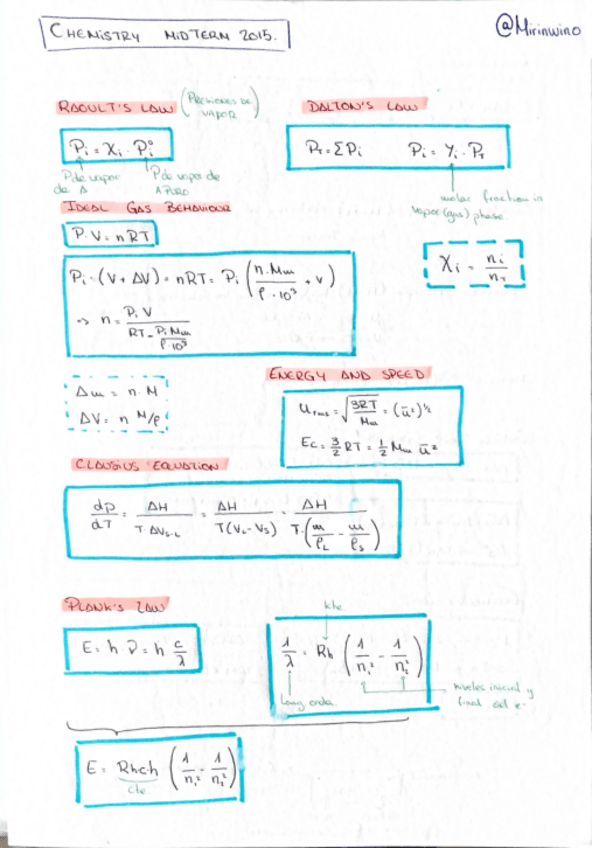 CHEMISTRY MIDTERM 2015.
@Mirinwino
RAOULT'S LAW (PRESIONES DE VAPOR)
Pi = Xi · Pi°
P de vapor de A
P de vapor de A PURO
DALTON'S LAW
PT = ΣPi Pi = Yi · PT
molar fraction in
vapor (gas) phase
IDEAL GAS BEHAVIOUR
P·V = nRT
Xi = ni/nT
Pi · (V + ΔV) = nRT = Pi (n·Mm/ρ·10³ + V)
=> n = Pi V / (RT - Pi Mm/ρ·10³)
Δm = n · M
ΔV = n M/ρ
ENERGY AND SPEED
Urms = √(3RT/Mm) = (ū²)^½
Ec = 3/2 RT = 1/2 Mm ū²
CLAUSIUS EQUATION
dp/dT = ΔH/(T·ΔVS-L) = ΔH/(T(VL-VS)) = ΔH/(T·(m/ρL - m/ρS))
PLANK'S LAW
E = h·ν = h c/λ
kte.
1/λ = Rh (1/n₁² - 1/n₂²)
Long. onda.
niveles inicial y
final del e-
E = Rhch (1/n₁² - 1/n₂²)
cte.